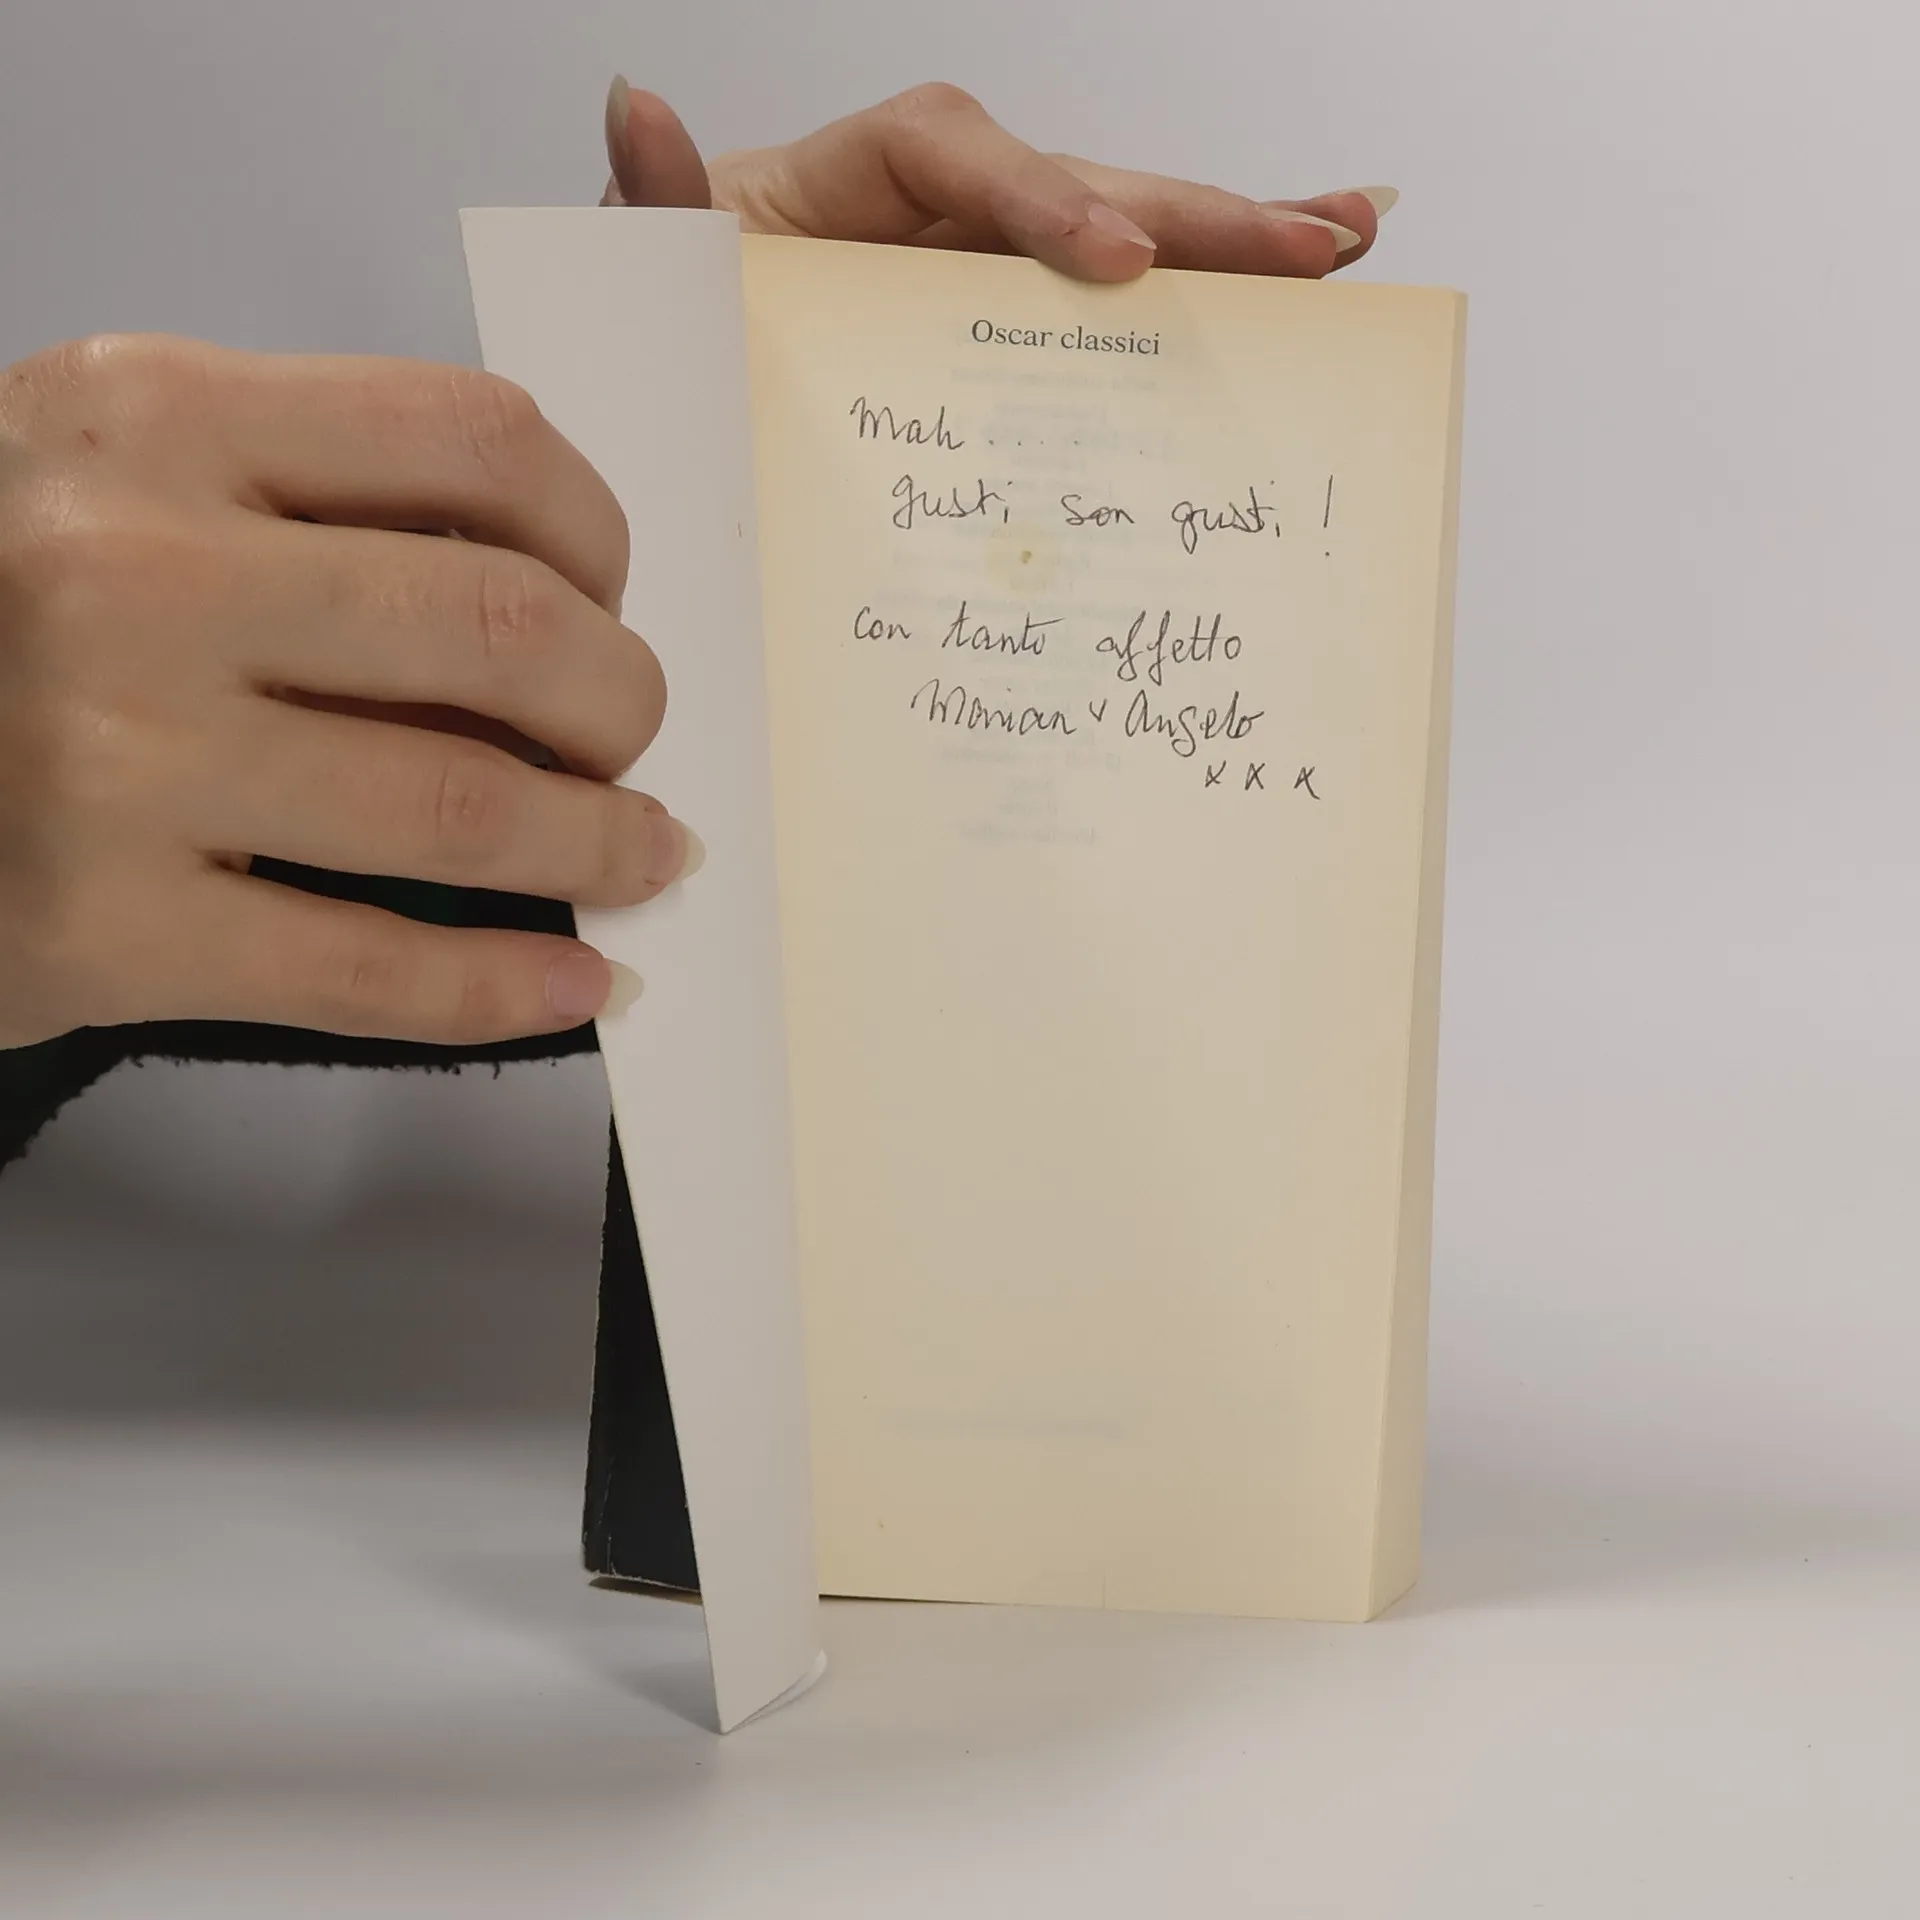 Oscar classici
Mah .....
gusti son gusti !
con tanto affetto
Monian & Angelo
x x x